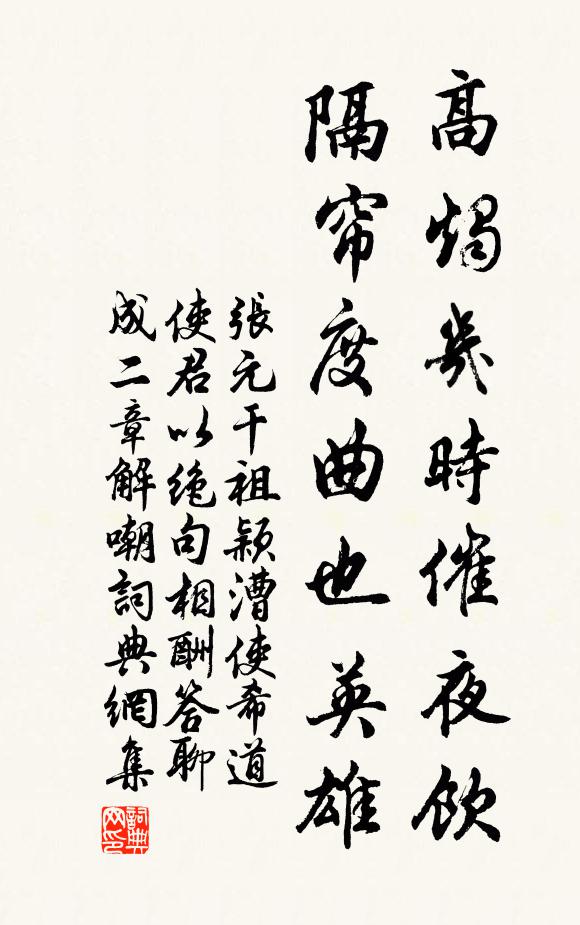 高燭幾時催夜飲
隔帘度曲也英雄
張元干祖穎漕使希道
使君以絶句相酬答聊
成二章解嘲詞典網集
詞典
网印